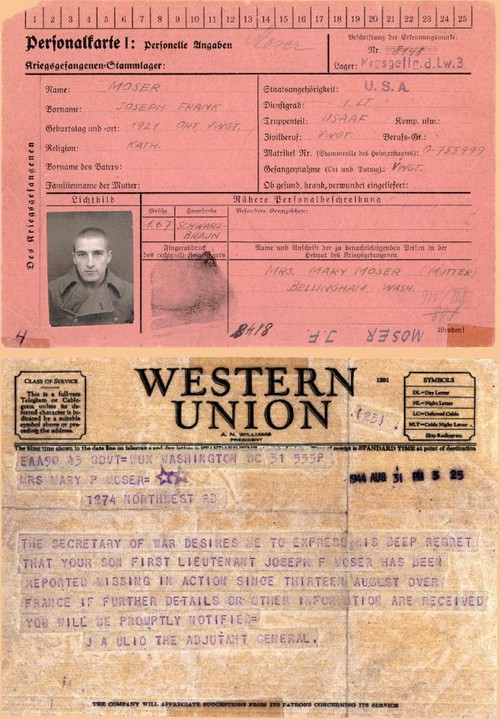 1 2 3 4 5 6 7 8 9 10 11 12 13 14 15 16 17 18 19 20 21 22 23 24 25
Personalkarte I: Personelle Angaben
Moser
Beschriftung der Erkennungsmarke:
Nr. 8148
Kriegsgefangenen-Stammlager:
Lager: Krsgefl. d. Lw. 3
Des Kriegsgefangenen
Name: MOSER
Vorname: JOSEPH FRANK
Geburtstag und -ort: 1921 ORT VWGT.
Religion: KATH.
Vorname des Vaters:
Familienname der Mutter:
Staatsangehörigkeit: U.S.A.
Dienstgrad: 1. LT.
Truppenteil: USAAF Komp. usw.:
Zivilberuf: VWGT. Berufs-Gr.:
Matrikel Nr. (Stammrolle des Heimatstaates): O-755999
Gefangennahme (Ort und Datum): VWGT.
Ob gesund, krank, verwundet eingeliefert:
Lichtbild
Nähere Personalbeschreibung
Größe
Haarfarbe
Besondere Kennzeichen:
1.67
SCHWARZ-
BRAUN
Fingerabdruck
des rechten Zeigefingers
Name und Anschrift der zu benachrichtigenden Person in der
Heimat des Kriegsgefangenen
MRS. MARY MOSER (MUTTER)
BELLINGHAM, WASH.
4
8418
MOSER J.F.
Wenden!
CLASS OF SERVICE
This is a full-rate
Telegram or Cable-
gram unless its de-
ferred character is in-
dicated by a suitable
symbol above or pre-
ceding the address.
WESTERN
UNION
A. N. WILLIAMS
PRESIDENT
1201
(25)
SYMBOLS
DL=Day Letter
NL=Night Letter
LC=Deferred Cable
NLT=Cable Night Letter
Ship Radiogram
The filing time shown in the date line on telegrams and day letters is STANDARD TIME at point of destination
EAA90 43 GOVT=WUX WASHINGTON DC 31 555P
MRS MARY P MOSER=
1944 AUG 31 PM 3 25
1874 NORTHWEST RD
THE SECRETARY OF WAR DESIRES ME TO EXPRESS HIS DEEP REGRET
THAT YOUR SON FIRST LIEUTENANT JOSEPH F MOSER HAS BEEN
REPORTED MISSING IN ACTION SINCE THIRTEEN AUGUST OVER
FRANCE IF FURTHER DETAILS OR OTHER INFORMATION ARE RECEIVED
YOU WILL BE PROMPTLY NOTIFIED=
J A ULIO THE ADJUTANT GENERAL.
THE COMPANY WILL APPRECIATE SUGGESTIONS FROM ITS PATRONS CONCERNING ITS SERVICE